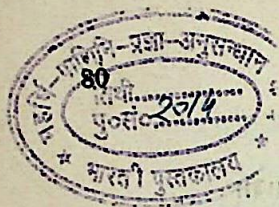 महर्षि-पाणिनि-प्रज्ञा-अनुसन्धान
80
तिथी..............
पु०सं० 2014
* भारती पुस्तकालय *